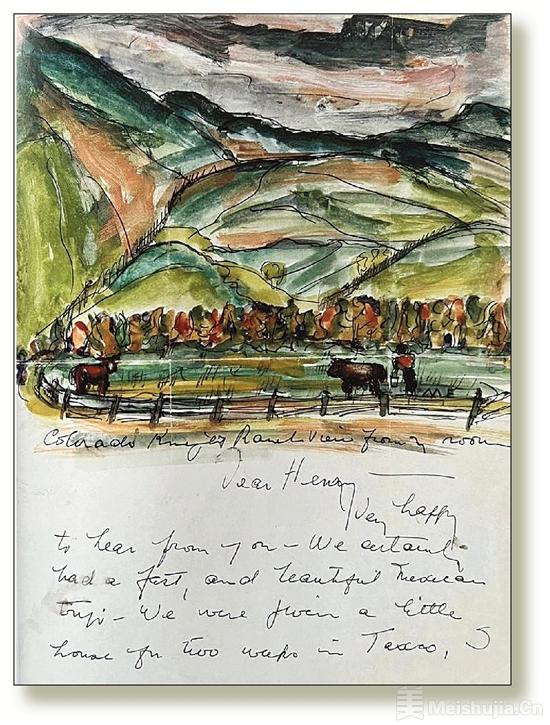 ME
Colorado Ranch View from my room
Dear Henry —
Very happy
to hear from you — We certainly
had a fast, and beautiful Mexican
trip — We were given a little
house for two weeks in Taxco, S
美 Meishujia.Cn